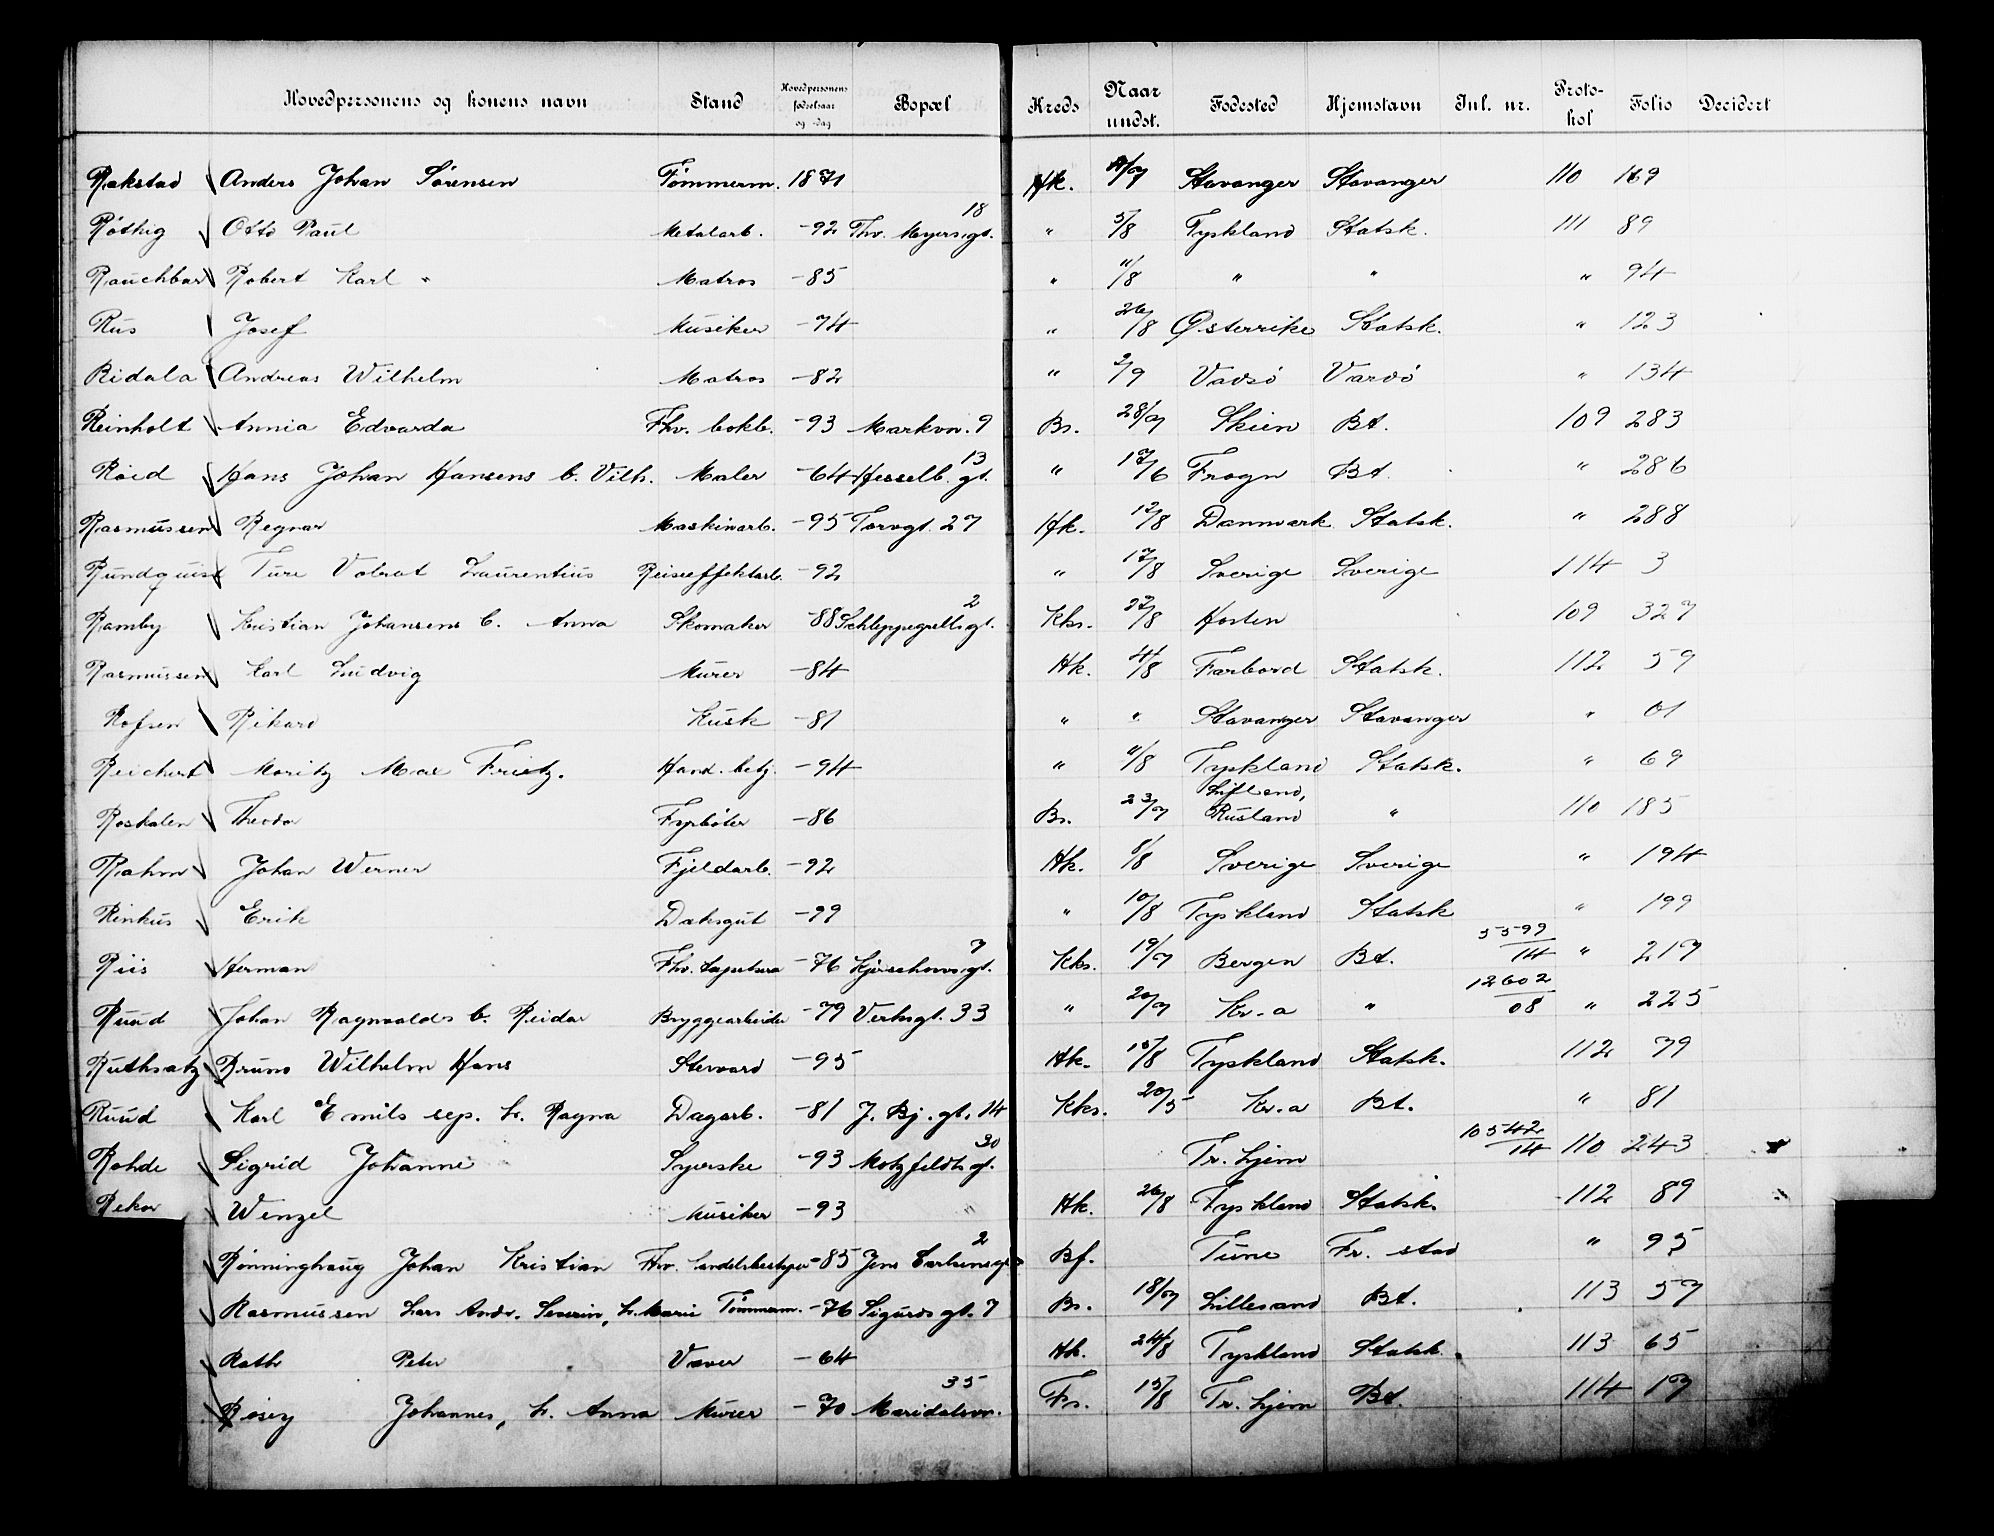 Hovedpersonens og konens navn Stand Hovedpersonens fødselsaar og -dag Bopæl Kreds Naar undst. Fødested Hjemstavn Inl. nr. Protokol Folio Decidert
Rakstad Anders Johan Sørensen Tømmerm. 1871 Hk. Stavanger Stavanger 110 169
Røthig Otto Paul Metalarb. -92 Thv. Meyersgt. 18 " 5/8 Tyskland Statsk. 111 89
Rauchbar Robert Karl " Matros -85 " 11/8 " " " 94
Rus Josef Musiker -74 " 26/8 Østerrike Statsk. " 123
Ridala Andreas Wilhelm Matros -82 " 2/9 Vadsø Vardø " 134
Reinholt Annia Edvarda Fhv. bokb. -93 Markvn. 9 Bs. 28/7 Skien Bt. 109 283
Røid Hans Johan Hansens b. Vilh. Maler -64 Hesselb. gt. 13 " 17/6 Frogn Bt. " 286
Rasmussen Regnar Maskinarb. -95 Torvgt. 27 Hk. 12/8 Danmark Statsk. " 288
Rundquist Ture Valrat Laurentius Reiseeffektarb. -92 " 17/8 Sverige Sverige 114 3
Ramby Kristian Johansens b. Anna Skomaker -88 Schleppegrellsgt. 2 Kks. 27/8 Horten 109 327
Rasmussen Karl Ludvig Murer -84 Hk. 4/8 Statsk. 112 59
Rofsen Rikard Kusk -81 " " Stavanger Stavanger " 01
Reichert Moritz Max Frietz. Hand. betj. -94 " 11/8 Tyskland Statsk. " 69
Roskalen Theodor Fyrbøter -86 Bs. 23/7 Lifland, Rusland " 110 185
Rahm Johan Werner Fjeldarb. -92 Hk. 8/8 Sverige Sverige " 194
Rinkus Erik Dæksgut -99 " 10/8 Tyskland Statsk " 199
Riis Herman Fhv. -76 Kjerschowsgt. 7 Kks. 19/7 Bergen Bt. 5599/14 " 217
Ruud Johan Ragnvalds b. Reidar Bryggearbeider -79 Verksgt. 33 " 20/7 Kr.a " 12602/08 " 225
Ruthsatz Bruno Wilhelm Hans Steward -95 Hk. 15/8 Tyskland Statsk. 112 79
Ruud Karl Emils sep. h. Ragna Dagarb. -81 J. Bj. gt. 14 Kks. 20/5 Kr.a Bt. " 81
Rohde Sigrid Johanne Syerske -93 Motzfeldts gt. 30 Tr. hjem 10542/14 110 243
Rekar Wenzel Musiker -93 Hk. 26/8 Tyskland Statsk. 112 89
Rønninghaug Johan Kristian Fhv. handelsbestyrer -85 Jens Carlsensgt. 2 Bf. Tune Fr. stad " 95
Rasmussen Lars Andr. Severin, h. Marie Tømmerm. -76 Sigurds gt. 7 Bs. 18/7 Lillesand Bt. 113 57
Rath Peter Væver -64 Hk. 24/8 Tyskland Statsk. 113 65
Rosey Johannes, h. Anna Murer -70 Maridalsvn. 35 Fs. 15/8 Tr. hjem Bt. 114 17